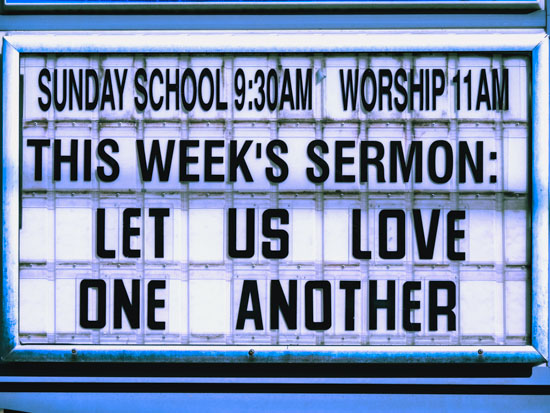 SUNDAY SCHOOL 9:30AM WORSHIP 11AM
THIS WEEK'S SERMON:
LET US LOVE
ONE ANOTHER